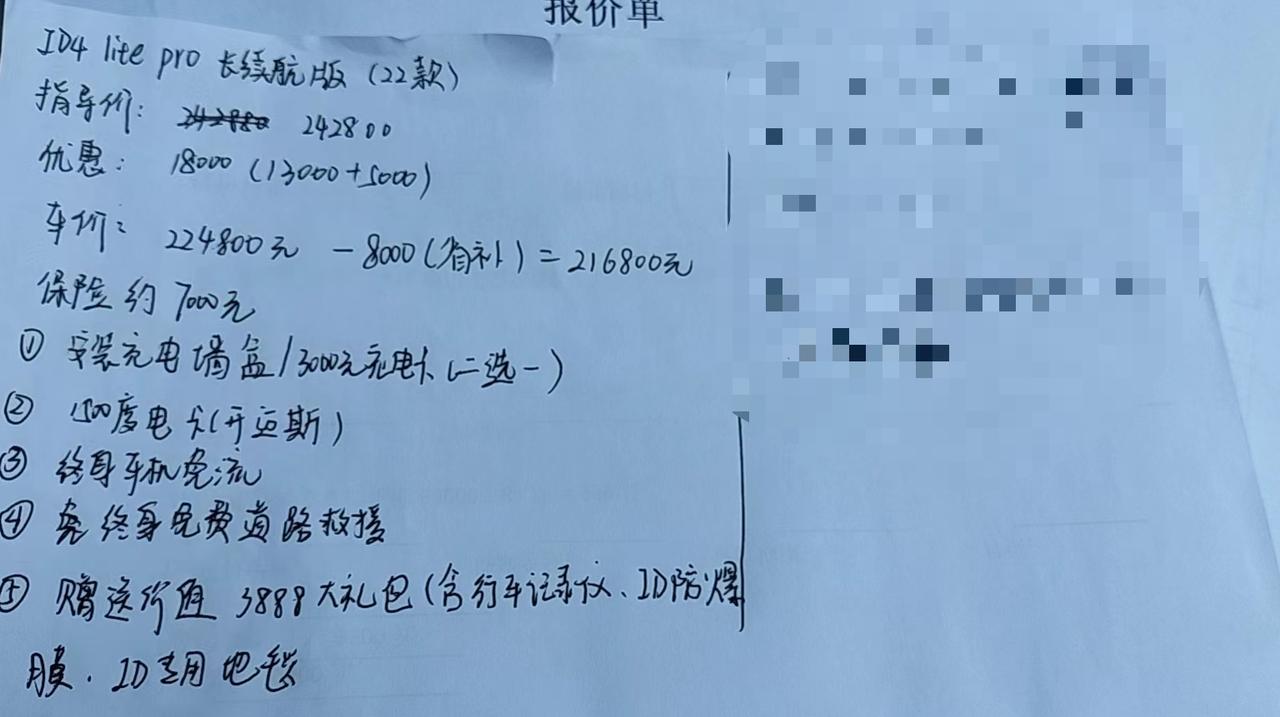 报价单
ID4 lite pro 长续航版 (22款)
指导价: 242880 242800
优惠: 18000 (13000+5000)
车价: 224800元 -8000(省补)=216800元
保险约7000元
① 安装充电墙盒/3000元充电卡(二选一)
② 1500度电卡(开迈斯)
③ 终身车机免流
④ 免终身免费道路救援
⑤ 赠送价值 3888大礼包(含行车记录仪、ID防爆
膜、ID专用地毯